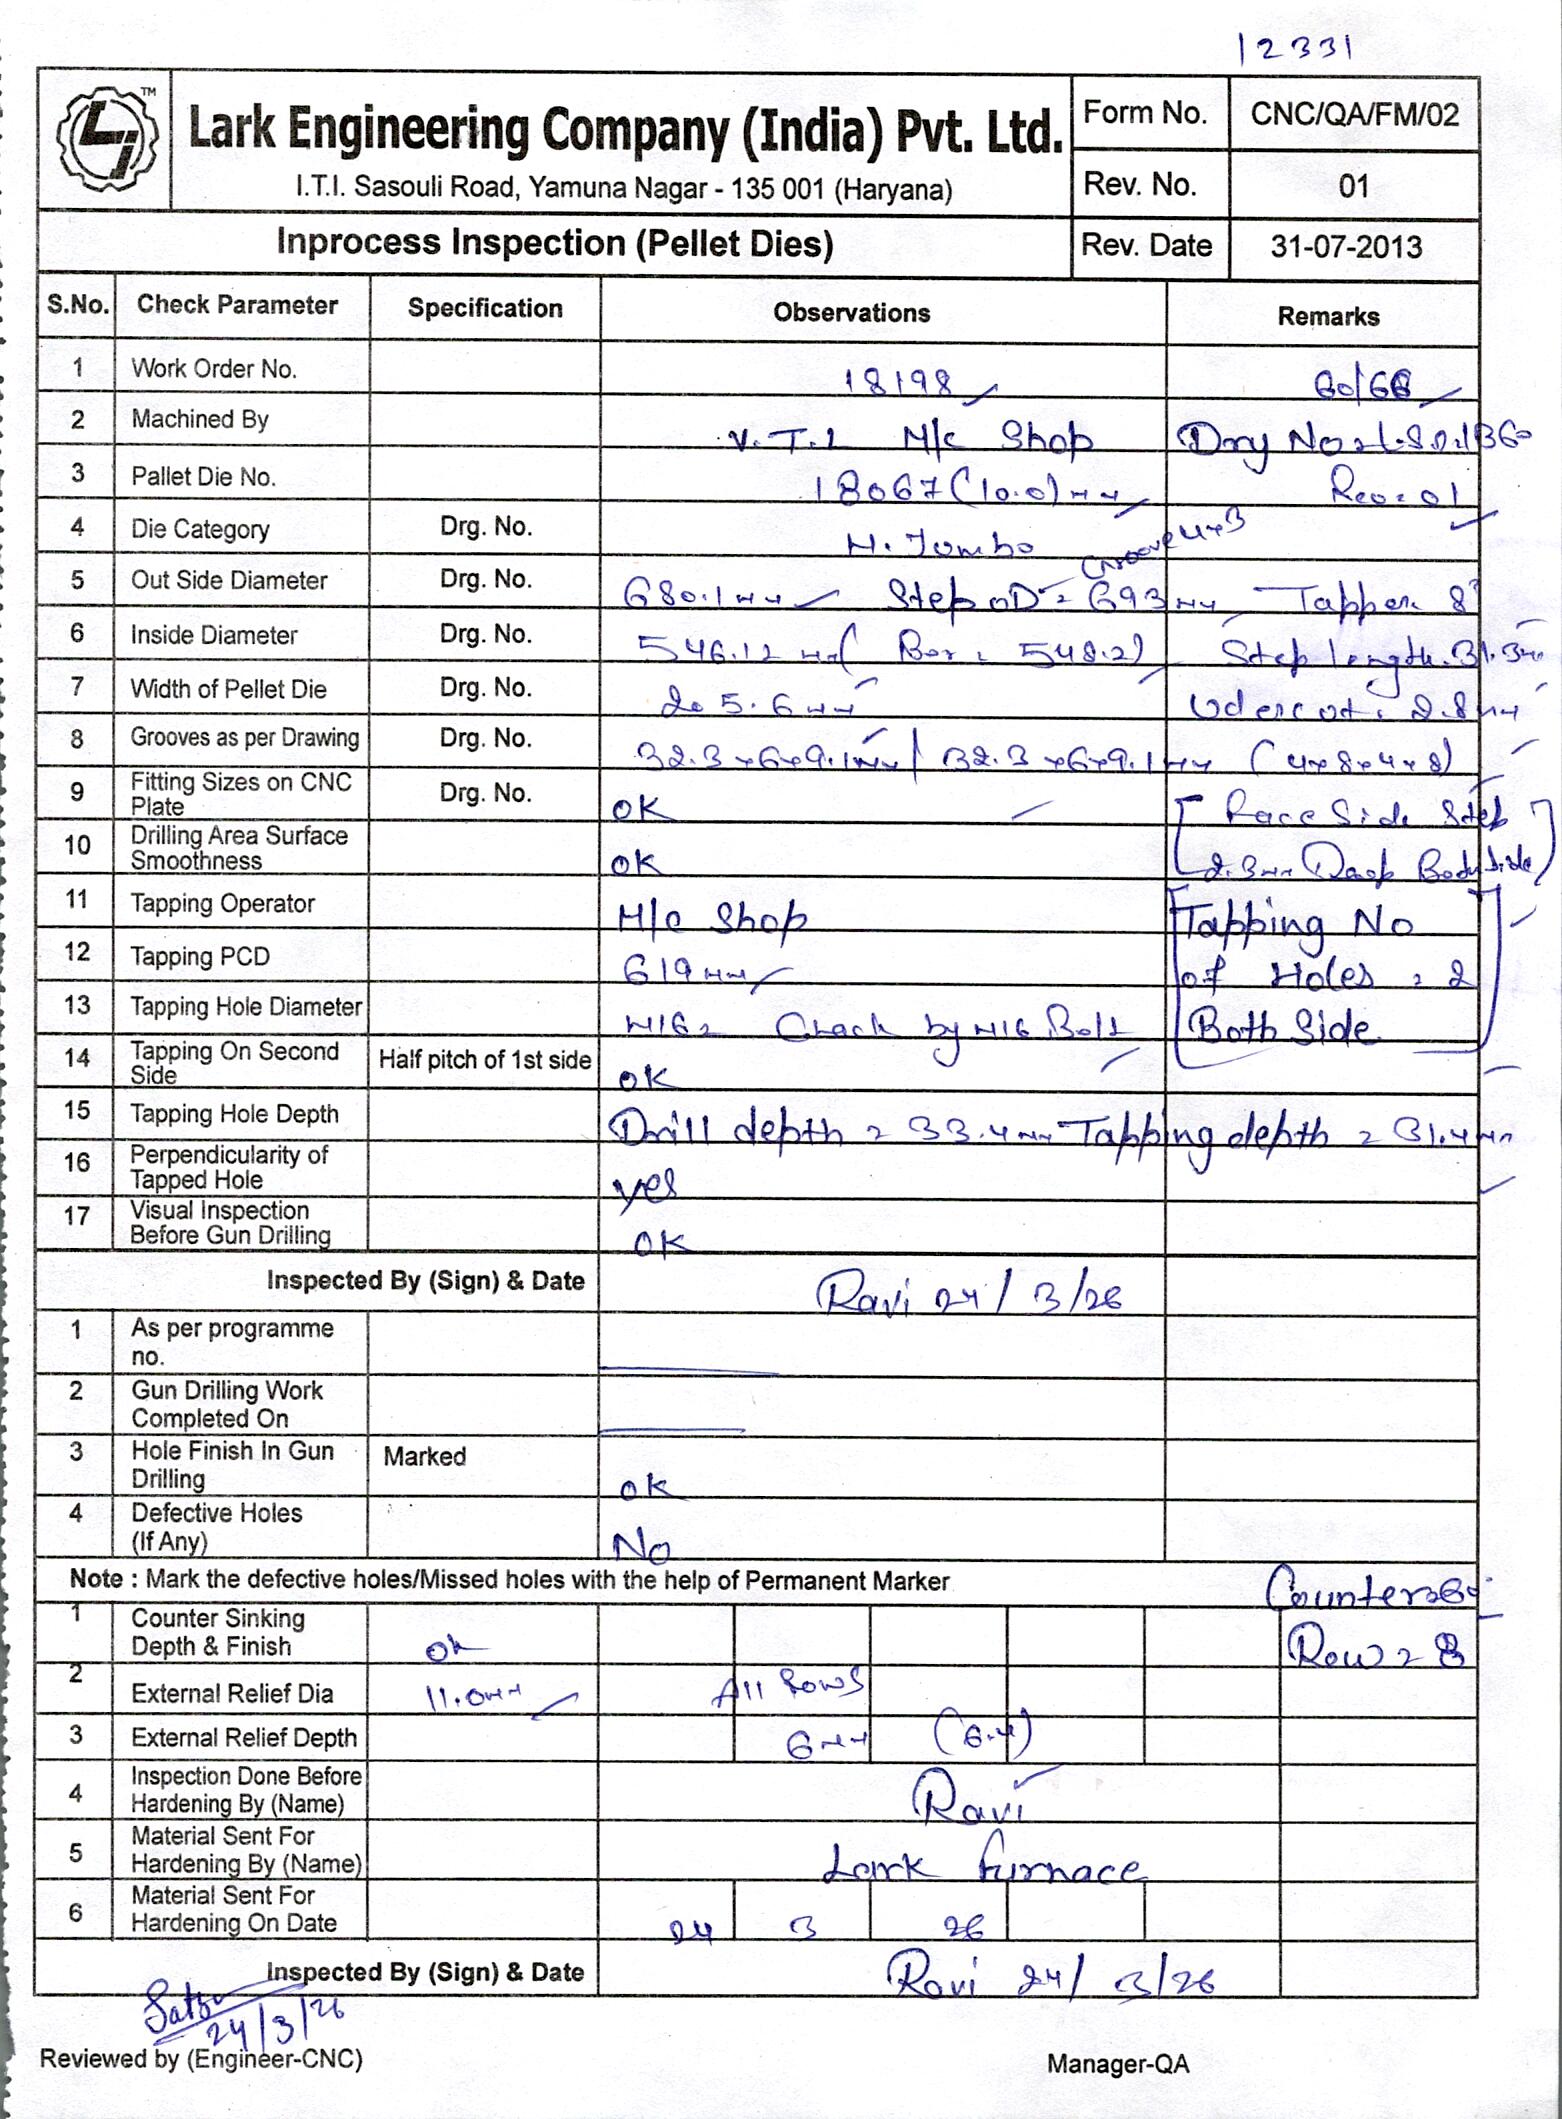 12331
TM
Lark Engineering Company (India) Pvt. Ltd.
I.T.I. Sasouli Road, Yamuna Nagar - 135 001 (Haryana)
Form No. CNC/QA/FM/02
Rev. No. 01
Inprocess Inspection (Pellet Dies) Rev. Date 31-07-2013
S.No. Check Parameter Specification Observations Remarks
1 Work Order No. 18198 60/66
2 Machined By V.T.L M/c Shop
3 Pallet Die No. 18067 (10.0) mm Rev:01
4 Die Category Drg. No. H. Jumbo Groove 4x3
5 Out Side Diameter Drg. No. 680.1mm Step OD = 693mm Tapper 8°
6 Inside Diameter Drg. No. 546.12 mm ( Bor: 548.2) Step length. 31.3mm
7 Width of Pellet Die Drg. No. 205.6mm 2.8mm
8 Grooves as per Drawing Drg. No. 32.3x6x9.1mm / 32.3x6x9.1mm (4x8x4x8)
9 Fitting Sizes on CNC Plate Drg. No. OK [ Face Side Step
10 Drilling Area Surface Smoothness OK 2.3mm Deep Body Side ]
11 Tapping Operator M/c Shop [Tapping No
12 Tapping PCD 619mm of Holes = 2
13 Tapping Hole Diameter M16= Check by M16 Bolt Both Side]
14 Tapping On Second Side Half pitch of 1st side OK
15 Tapping Hole Depth Drill depth = 33.4mm Tapping depth = 31.4mm
16 Perpendicularity of Tapped Hole yes
17 Visual Inspection Before Gun Drilling OK
Inspected By (Sign) & Date Ravi 24/3/26
1 As per programme no.
2 Gun Drilling Work Completed On
3 Hole Finish In Gun Drilling Marked OK
4 Defective Holes (If Any) No
Note : Mark the defective holes/Missed holes with the help of Permanent Marker
1 Counter Sinking Depth & Finish ok Row = 8
2 External Relief Dia 11.0mm All Rows
3 External Relief Depth 6mm (6.4)
4 Inspection Done Before Hardening By (Name) Ravi
5 Material Sent For Hardening By (Name) Lark furnace
6 Material Sent For Hardening On Date 24 3 26
Inspected By (Sign) & Date Ravi 24/3/26
24/3/26
Reviewed by (Engineer-CNC) Manager-QA